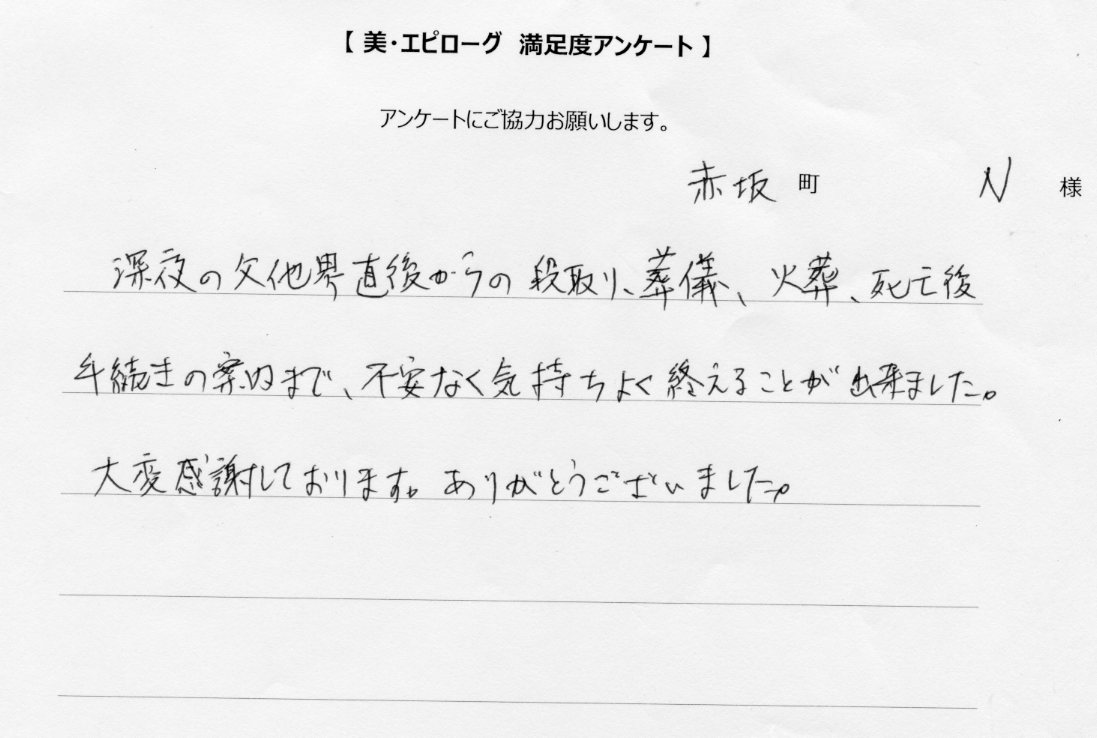 【 美・エピローグ 満足度アンケート 】
アンケートにご協力お願いします。
赤坂 町 N 様
深夜の父他界直後からの段取り、葬儀、火葬、死亡後
手続きの案内まで、不安なく気持ちよく終えることが出来ました。
大変感謝しております。ありがとうございました。